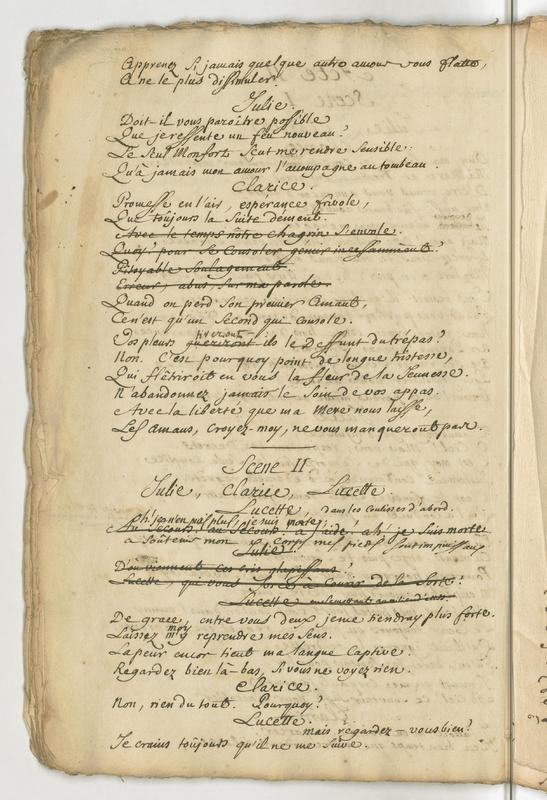 Apprenez si jamais quelque autre amour vous flatte,
A ne le plus dissimuler.
Julie.
Doit-il vous paroître possible
Que je ressente un feu nouveau?
Le seul Monfort sceut me rendre sensible.
Qu'à jamais mon amour l'accompagne au tombeau.
Clarice.
Promesse en l'air, espérance frivole,
Que toujours la suite dément.
Avec le temps nôtre chagrin s'envole.
Quoy? pour se consoler gemir incessamment?
Pitoyable soulagement.
Erreur, abus, sur ma parole.
Quand on perd son premier Amant,
Ce n'est qu'un second qui console.
Vos pleurs ils le deffunt du trépas?
Non. C'est pourquoy point de longue tristesse,
Qui flétriroit en vous la fleur de la Jeunesse.
N'abandonnez jamais le soin de vos appas.
Avec la liberté que ma Mere nous laisse,
Les Amans, croyez-moy, ne vous manqueront pas.
Scene II
Julie, Clarice, Lucette.
Lucette, dans les coulisses d'abord.
plus, je suis morte,
Au secours, au secours, à l'aide! ah! je suis morte
a soûtenir mon corps mes pieds sont impuissans
Julie.
D'où viennent ces cris glapissans?
Lucette, qui vous à courir de la sorte?
Lucette
De grace, entre vous deux je me tiendray plus forte.
Laissez moy reprendre mes sens.
La peur encor tient ma langue captive.
Regardez bien là-bas, si vous ne voyez rien.
Clarice.
Non, rien du tout. Pourquoy?
Lucette.
mais regardez-vous bien?
Je crains toujours qu'il ne me suive.